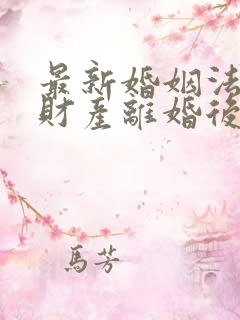 最新婚姻法
財產離婚後
馬芳